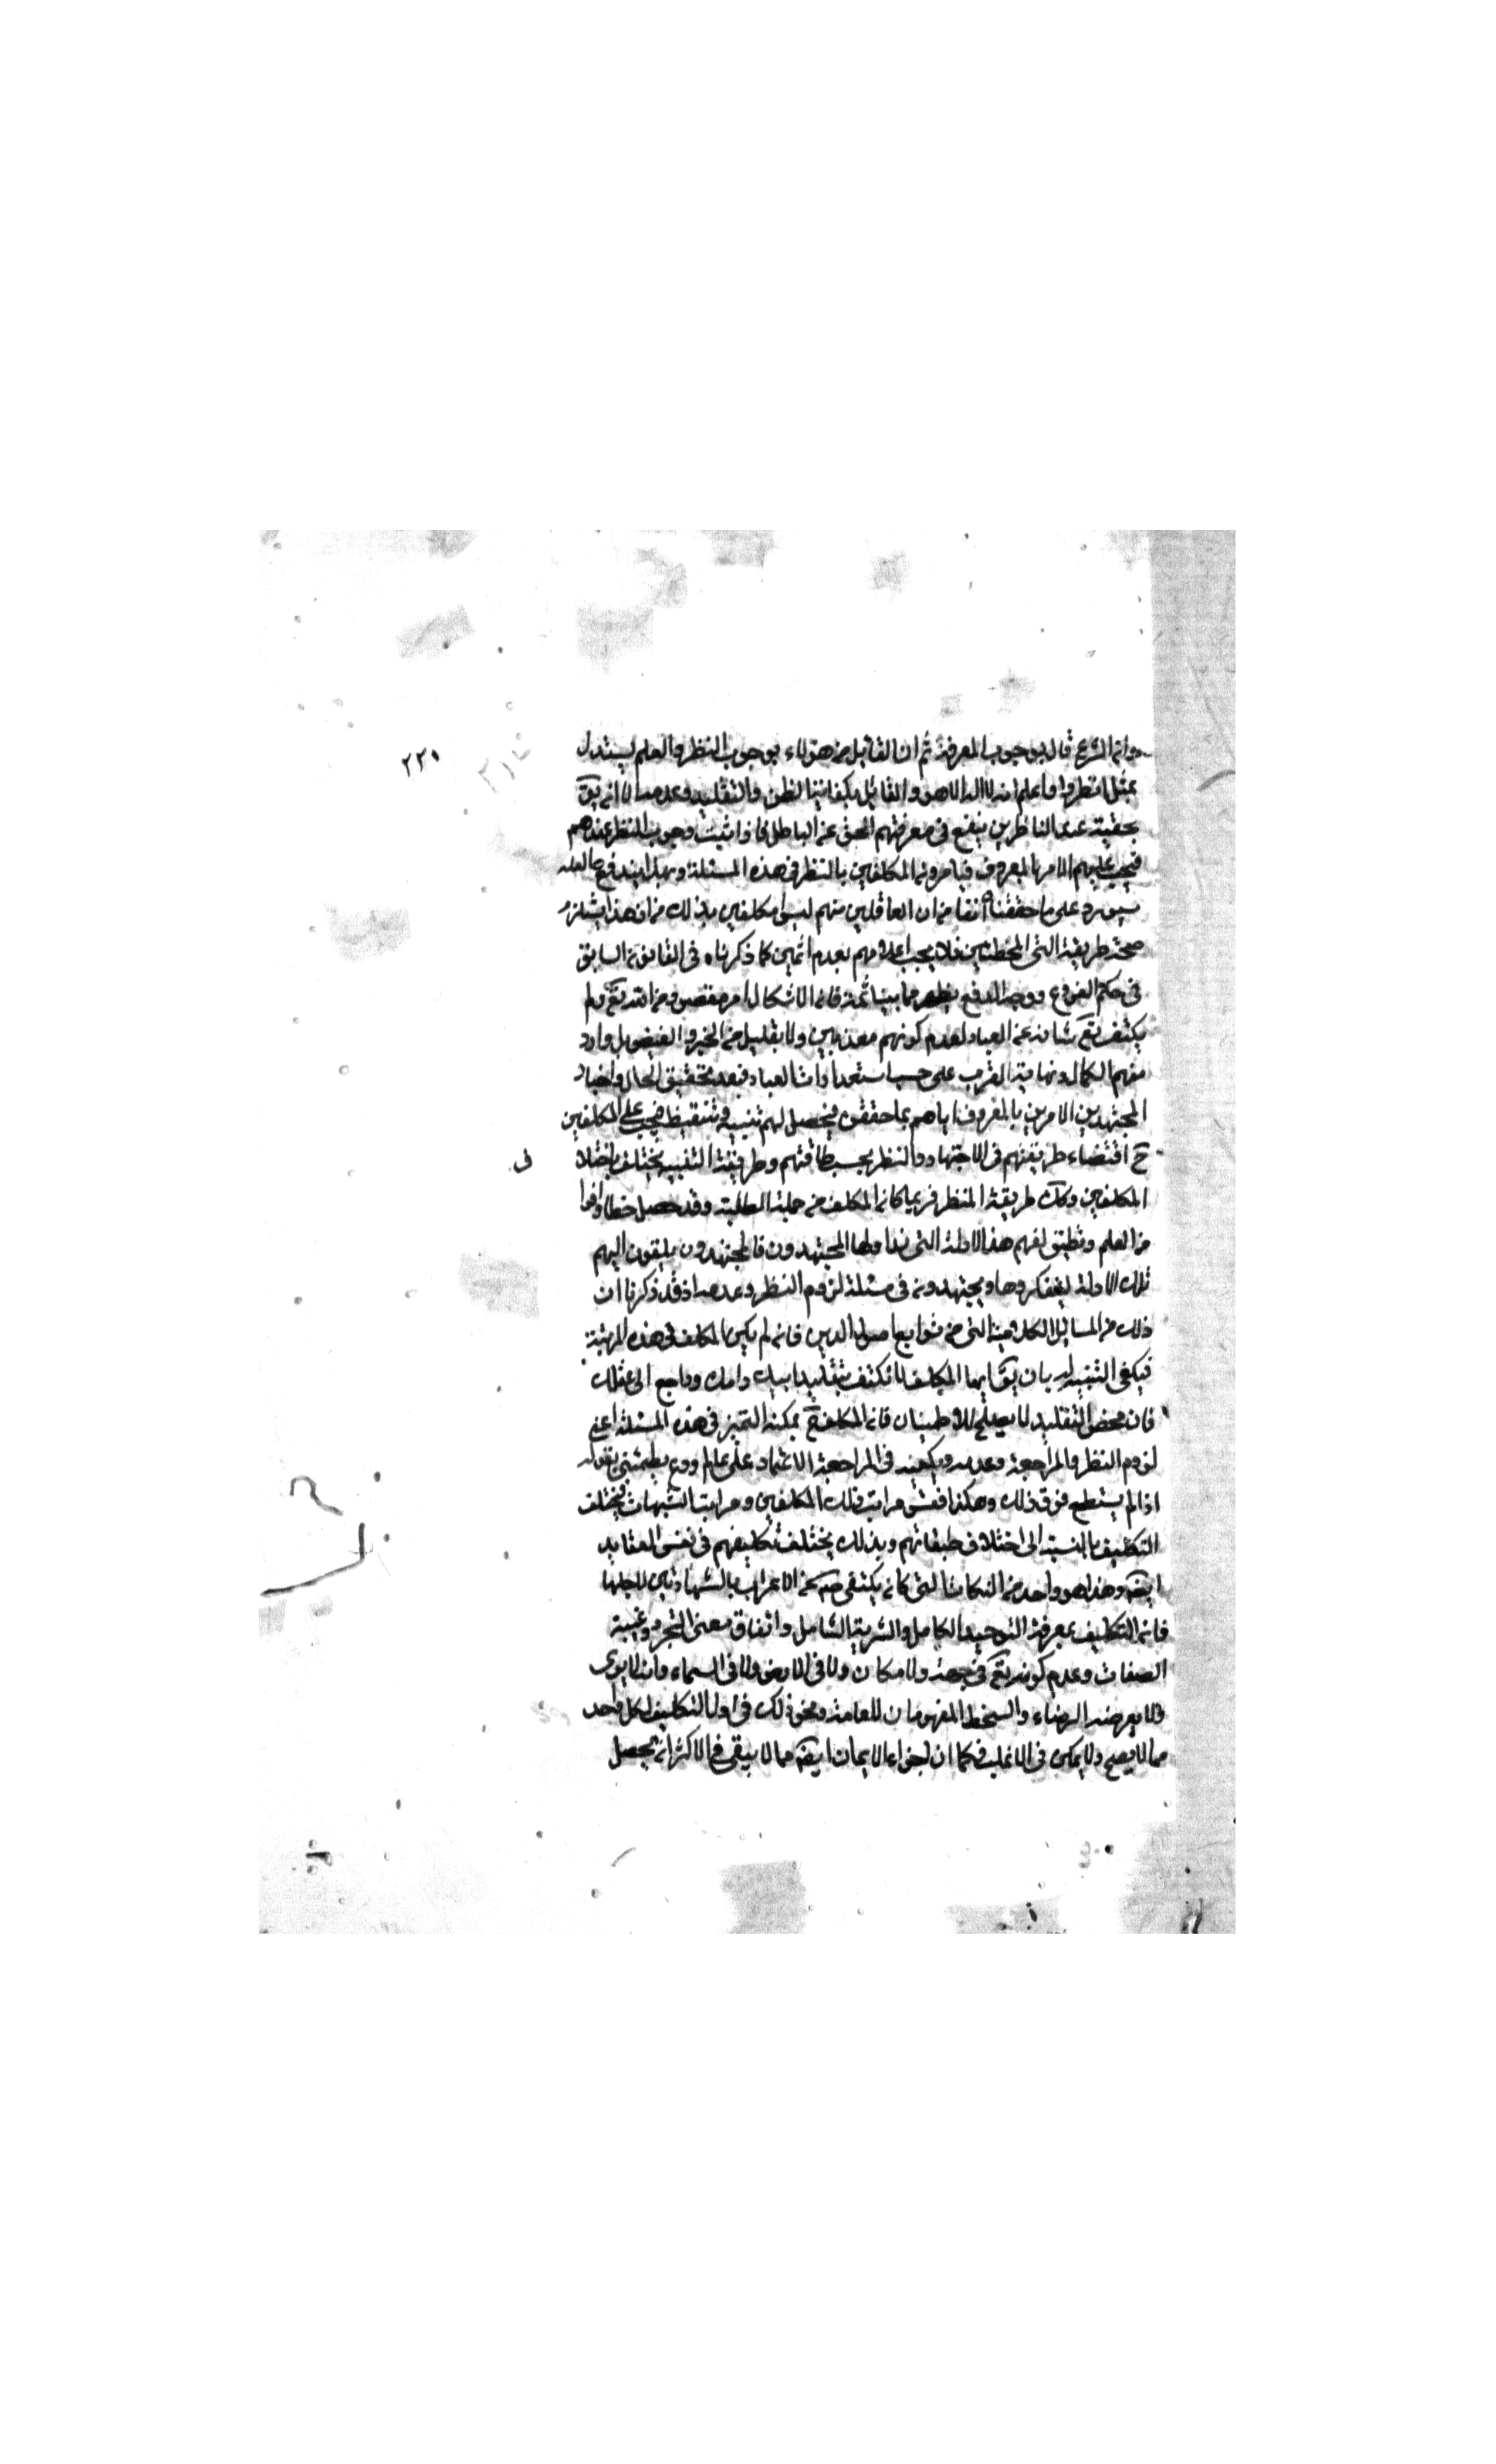 وان الشرع قال بوجوب المعرفة ثم ان القائل من هؤلاء بوجوب النظر والعلم يستدل
بمثل انظروا فاعلم انه لا اله الا هو والقائل بكفاية الظن والتقليد وعدمه الا ان يق
بحقية عند الناظرين ينفع فى معرفتهم الحق عن الباطل فاذا ثبت وجوب النظر عندهم
فيجب عليهم الامر بالمعروف فيامرون المكلفين بالنظر فى هذه المسئلة وبهذا يندفع ما لعله
يورد على ما حققنا آنفا من ان الغافلين منهم ليسوا مكلفين بذلك من ان هذا يستلزم
صحة طريقة المخطئين فلا يجب اعلامهم بعدم اثمين كما ذكرناه فى القانون السابق
فى حكم الفروع ووجه الدفع يظهر مما بينا ثمة فان الاشكال امر مقصود من الله تع ولم
يكتف تع شانه عن العباد لعدم كونهم معذبين ولا بقليل من الخير والفيض بل واراد
منهم الكمال ونهاية القرب على حسب استعدادات العباد فبعد تحقيق الحال واخبار
المجتهدين الامرين بالمعروف اياهم بما حققوه فيحصل لهم تنبيه وتيقظ فيجب على المكلفين
ح اقتضاء طريقتهم فى الاجتهاد والنظر بحسب طاقتهم وطريقة التنبيه يختلف باختلاف
المكلفين وكك طريقة النظر فربما كان المكلف من جملة الطلبة وقد حصل حظا وافرا
من العلم وتطيق لفهم هذه الادلة التى تداولها المجتهدون فالمجتهدون يلقون اليهم
تلك الادلة ليتفكروها ويجتهدون فى مسئلة لزوم النظر وعدمه اذ قد ذكرنا ان
ذلك من المسائل الكلامية التى من توابع اصول الدين فان لم يكن المكلف فى هذه المرتبة
فيكفى التنبيه له بان يق ايها المكلف لا تكتف بتقليد ابيك وامك وراجع الى عقلك
فان محض التقليد لا يصلح للاطمينان فان المكلف ح يمكنه التميز فى هذه المسئلة اعنى
لزوم النظر والمراجعة وعدمه ويكفيه فى المراجعة الاعتماد على عالم ورع يطمئن بقوله
اذا لم يستطع فوق ذلك وهكذا فتش مراتب فلك المكلفين ومراتب الشبهات فيختلف
التكليف بالنسبة الى اختلاف طبقاتهم وبذلك يختلف تكليفهم فى نفس العقايد
ايضه وهذا هو واحد من النكات التى كان يكتفى ص عن الاعراب بالشهادتين لاجلها
فان التكليف بمعرفة التوحيد الكامل والتنزيه الشامل واتفاق معنى التجرد وعينية
الصفات وعدم كونه تع فى جهة ولا مكان ولا فى الارض ولا فى السماء وانه لا يرى
ولا يعرضه الرضاء والسخط المفهومان للعامة ونحو ذلك فى اول التكليف لكل واحد
مما لا يصح ولا يمكن فى الاغلب فكما ان اجزاء الايمان ايضه مما لا يبقى فى الاكثر ان يحصل
٢٢٠